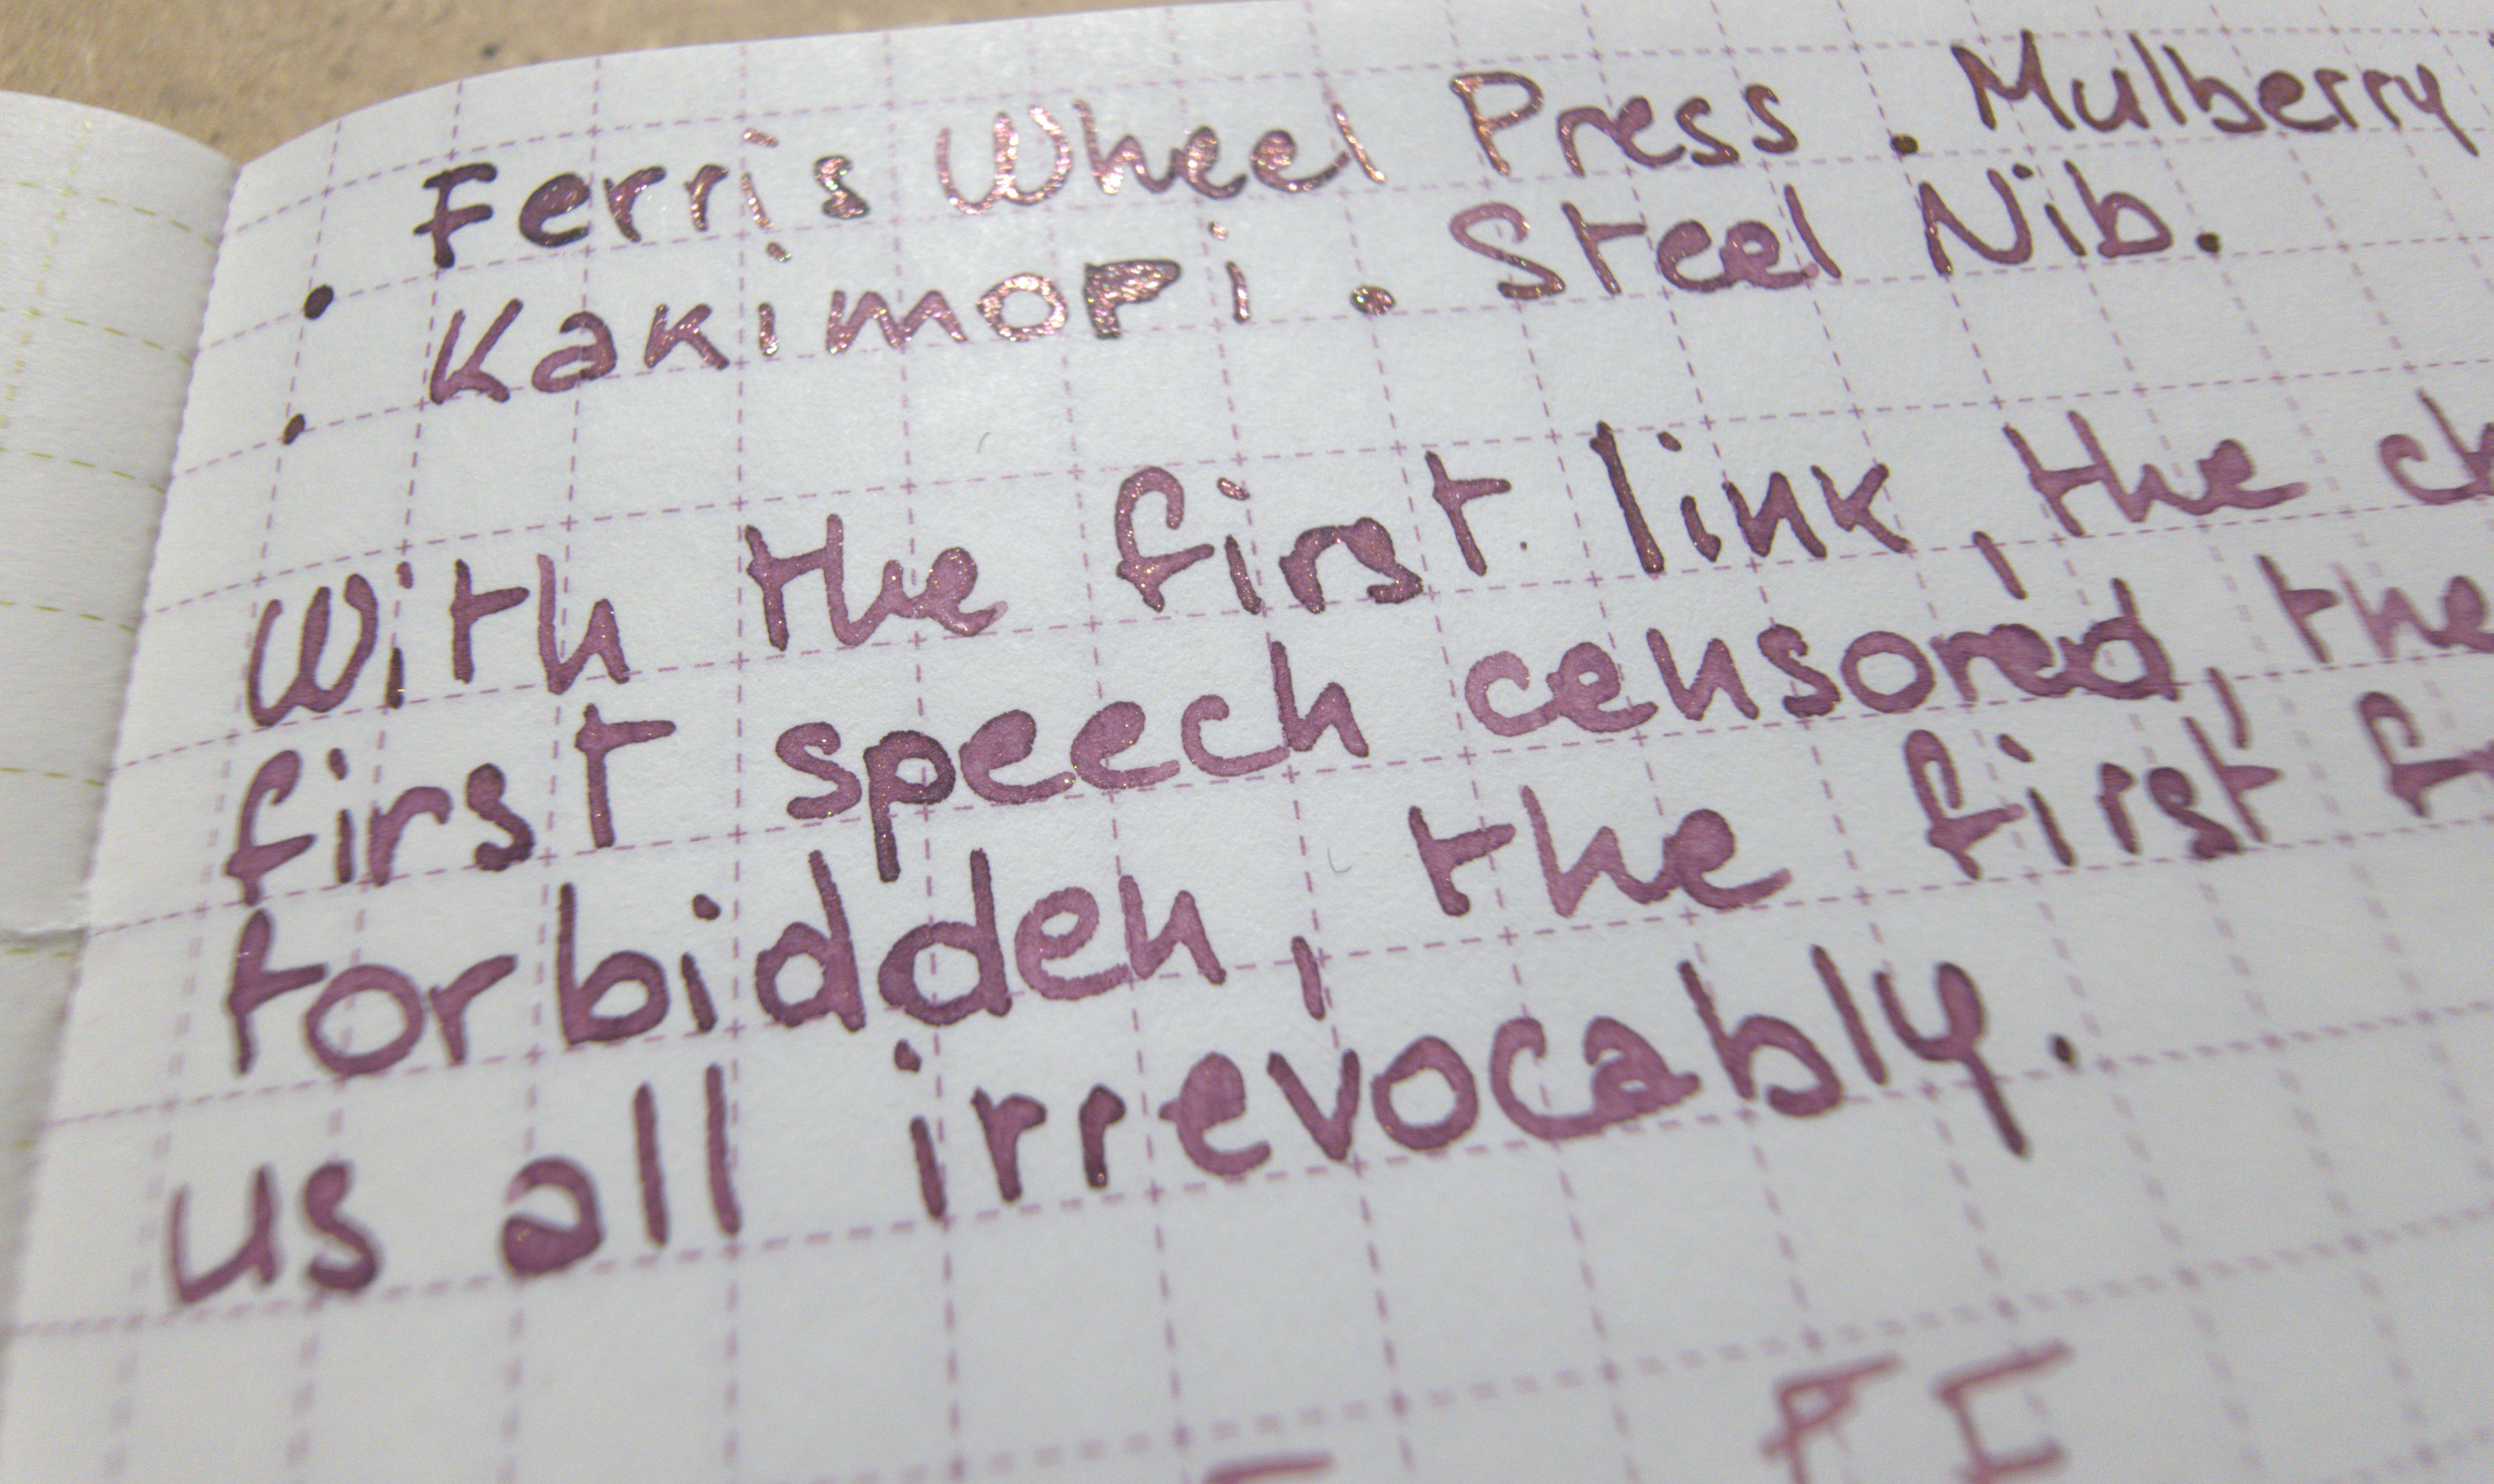 . Ferris Wheel Press . Mulberry
. Kakimori . Steel Nib.
With the first link, the
first speech censored, the
forbidden, the first
us all irrevocably.